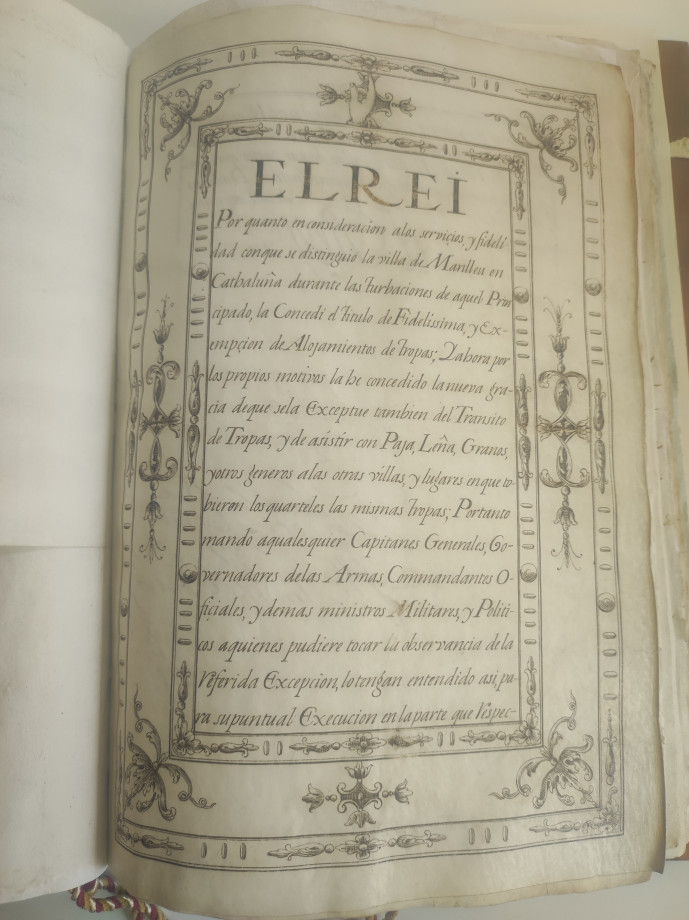 EL REI
Por quanto en consideracion a los servicios, y fideli
dad con que se distinguió la villa de Manlleu en
Cathaluña durante las turbaciones de aquel Prin
cipado, la Concedi el titulo de Fidelissima, y Ex-
empçion de Alojamientos de tropas; Y ahora por
los propios motivos la he concedido la nueva gra-
cia de que se la Exceptue tambien del Transito
de Tropas, y de asistir con Paja, Leña, Granos,
y otros generos a las otras villas, y lugares en que to
bieron los quarteles las mismas tropas; Portanto
mando a qualesquier Capitanes Generales, Go-
vernadores de las Armas, Commandantes O-
ficiales, y demas ministros Militares, y Politi-
cos a quienes pudiere tocar la observancia de la
referida Excepcion, lo tengan entendido asi, pa-
ra su puntual Execucion en la parte que respec-